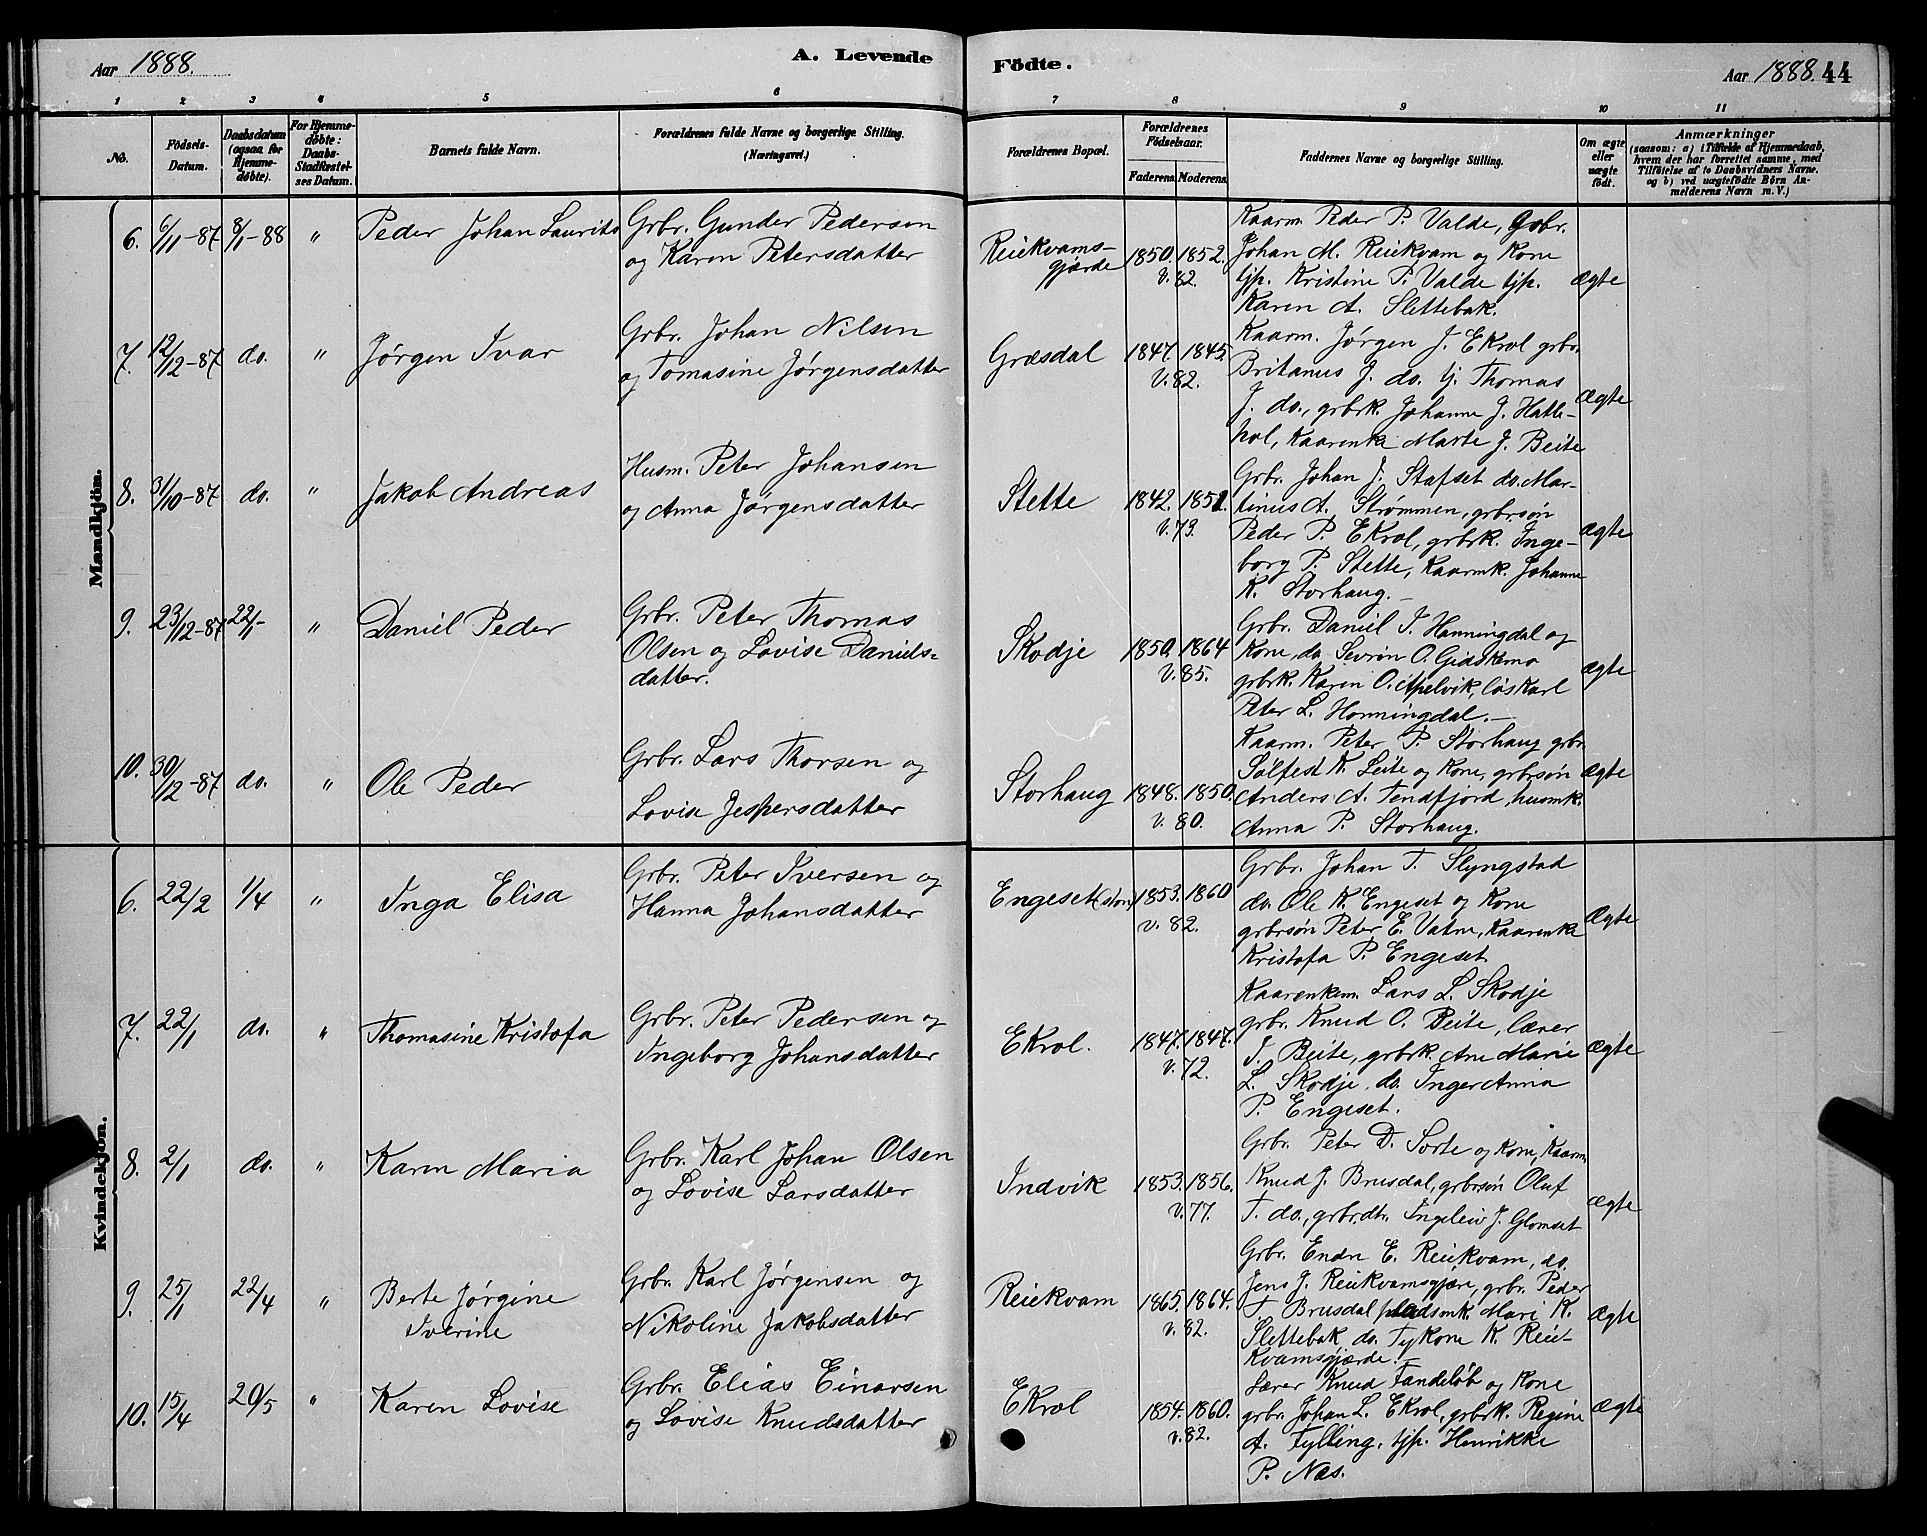 Aar 1888.
A. Levende
Födte.
Aar 1888. 44
1 2 3 4 5 6 7 8 9 10 11
No.
Födsels-Datum.
Daabsdatum (ogsaa for Hjemmedøbte).
For Hjemmedøbte: Daabs-Stadfæstelses Datum.
Barnets fulde Navn.
Forældrenes fulde Navne og borgerlige Stilling. (Næringsvei.)
Forældrenes Bopæl.
Forældrenes Födselsaar.
Faderens. Moderens.
Faddernes Navne og borgerlige Stilling.
Om ægte eller uægte födt.
Anmærkninger
(saasom: a) i Tilfælde af Hjemmedaab, hvem der har forrettet samme, med Tilföielse af to Daabsvidners Navne. og b) ved uægtefödte Börn Anmelderens Navn m. V.)
Mandkjön.
6. 6/11-87 8/1-88 " Peder Johan Laurits
Grbr. Gunder Pedersen
og Karen Petersdatter
Reiekvams-
gjærde
1850. 1852.
v. 82.
Kaarm. Peder P. Valde, Grbr.
Johan M. Reiekvam og Kone
tjp. Kristine P. Valde tjp.
Karen A. Slettebak.
ægte
7. 12/12-87 do. " Jørgen Ivar
Grbr. Johan Nilsen
og Tomasine Jørgensdatter
Græsdal
1847. 1845.
v. 82.
Kaarm. Jørgen J. Ekrol grbr.
Britanus J. do. tj. Thomas
J. do., grbrk. Johanne J. Hatle-
hol, Kaarenke Marte J. Beite
ægte
8. 31/10-87 do. " Jakob Andreas
Husm. Peter Johansen
og Anna Jørgensdatter
Stette
1842. 1851.
v. 73.
Grbr. Johan J. Stafset do. Mar-
tinus A. Strømmen, grbrsøn
Peder P. Ekrol, grbrk. Inge-
borg P. Stette, Kaarmk. Johanne
K. Storhaug.-
ægte
9. 23/12-87 22/1- " Daniel Peder
Grbr. Peter Thomas
Olsen og Lovise Daniels-
datter.
Skodje
1850. 1864
v. 85.
Grbr. Daniel I. Honningdal og
Kone, do. Sevrin O. Gidskemo
grbrk. Karen O. Apelvik, løskarl
Peter L. Honningdal.-
ægte
10. 30/12-87 do. " Ole Peder
Grbr. Lars Thorsen og
Lovise Jespersdatter
Storhaug
1848. 1850.
v. 80.
Kaarm. Peter P. Storhaug grbr.
Sølfest K. Leite og Kone, grbrsøn
Anders A. Tenfjord, husmk.
Anna P. Storhaug.
ægte
Kvindekjön.
6. 22/2 1/4 " Inga Elisa
Grbr. Peter Iversen og
Hanna Johansdatter
Engeset (stor)
1853. 1860
v. 82.
Grbr. Johan T. Slyngstad
do. Ole K. Engeset og Kone
grbrsøn Peter E. Vatne, Kaarenke
Kristofa P. Engeset
ægte
7. 22/1 do. " Thomasine Kristofa
Grbr. Peter Pedersen og
Ingeborg Johansdatter
Ekrol.
1847. 1847.
v. 72.
Kaarenkem. Lars L. Skodje
grbr. Knud O. Beite, lærer
J. Beite, grbrk. Ane Marie
L. Skodje, do. Inger Anna
P. Engeset.
ægte
8. 2/1 do. " Karen Maria
Grbr. Karl Johan Olsen
og Lovise Larsdatter
Indvik
1853. 1856.
v. 77.
Grbr. Peter D. Sorte og Kone, Kaarm.
Knud J. Brusdal, grbrsøn Oluf
T. do., grbrdtr. Ingeleiv J. Glomset
ægte
9. 25/1 22/4 " Berte Jørgine
Iverine
Grbr. Karl Jørgensen og
Nikoline Jakobsdatter
Reiekvam
1865. 1864.
v. 82.
Grbr. Endre E. Reiekvam, do.
Jens J. Reiekvamsgjære, grbr. Peder
T. Brusdal pladsmk. Mari K.
Slettebak, do. K. Reie-
kvamsgjærde.
ægte
10. 15/4 20/5 " Karen Lovise
Grbr. Elias Einarsen
og Lovise Knudsdatter
Ekrol
1854. 1860.
v. 82.
Lærer Knud Fandeløb og Kone
grbr. Johan L. Ekrol, grbrk. Regine
A. Fylling, tjp. Henrikke
P. Næs.
ægte